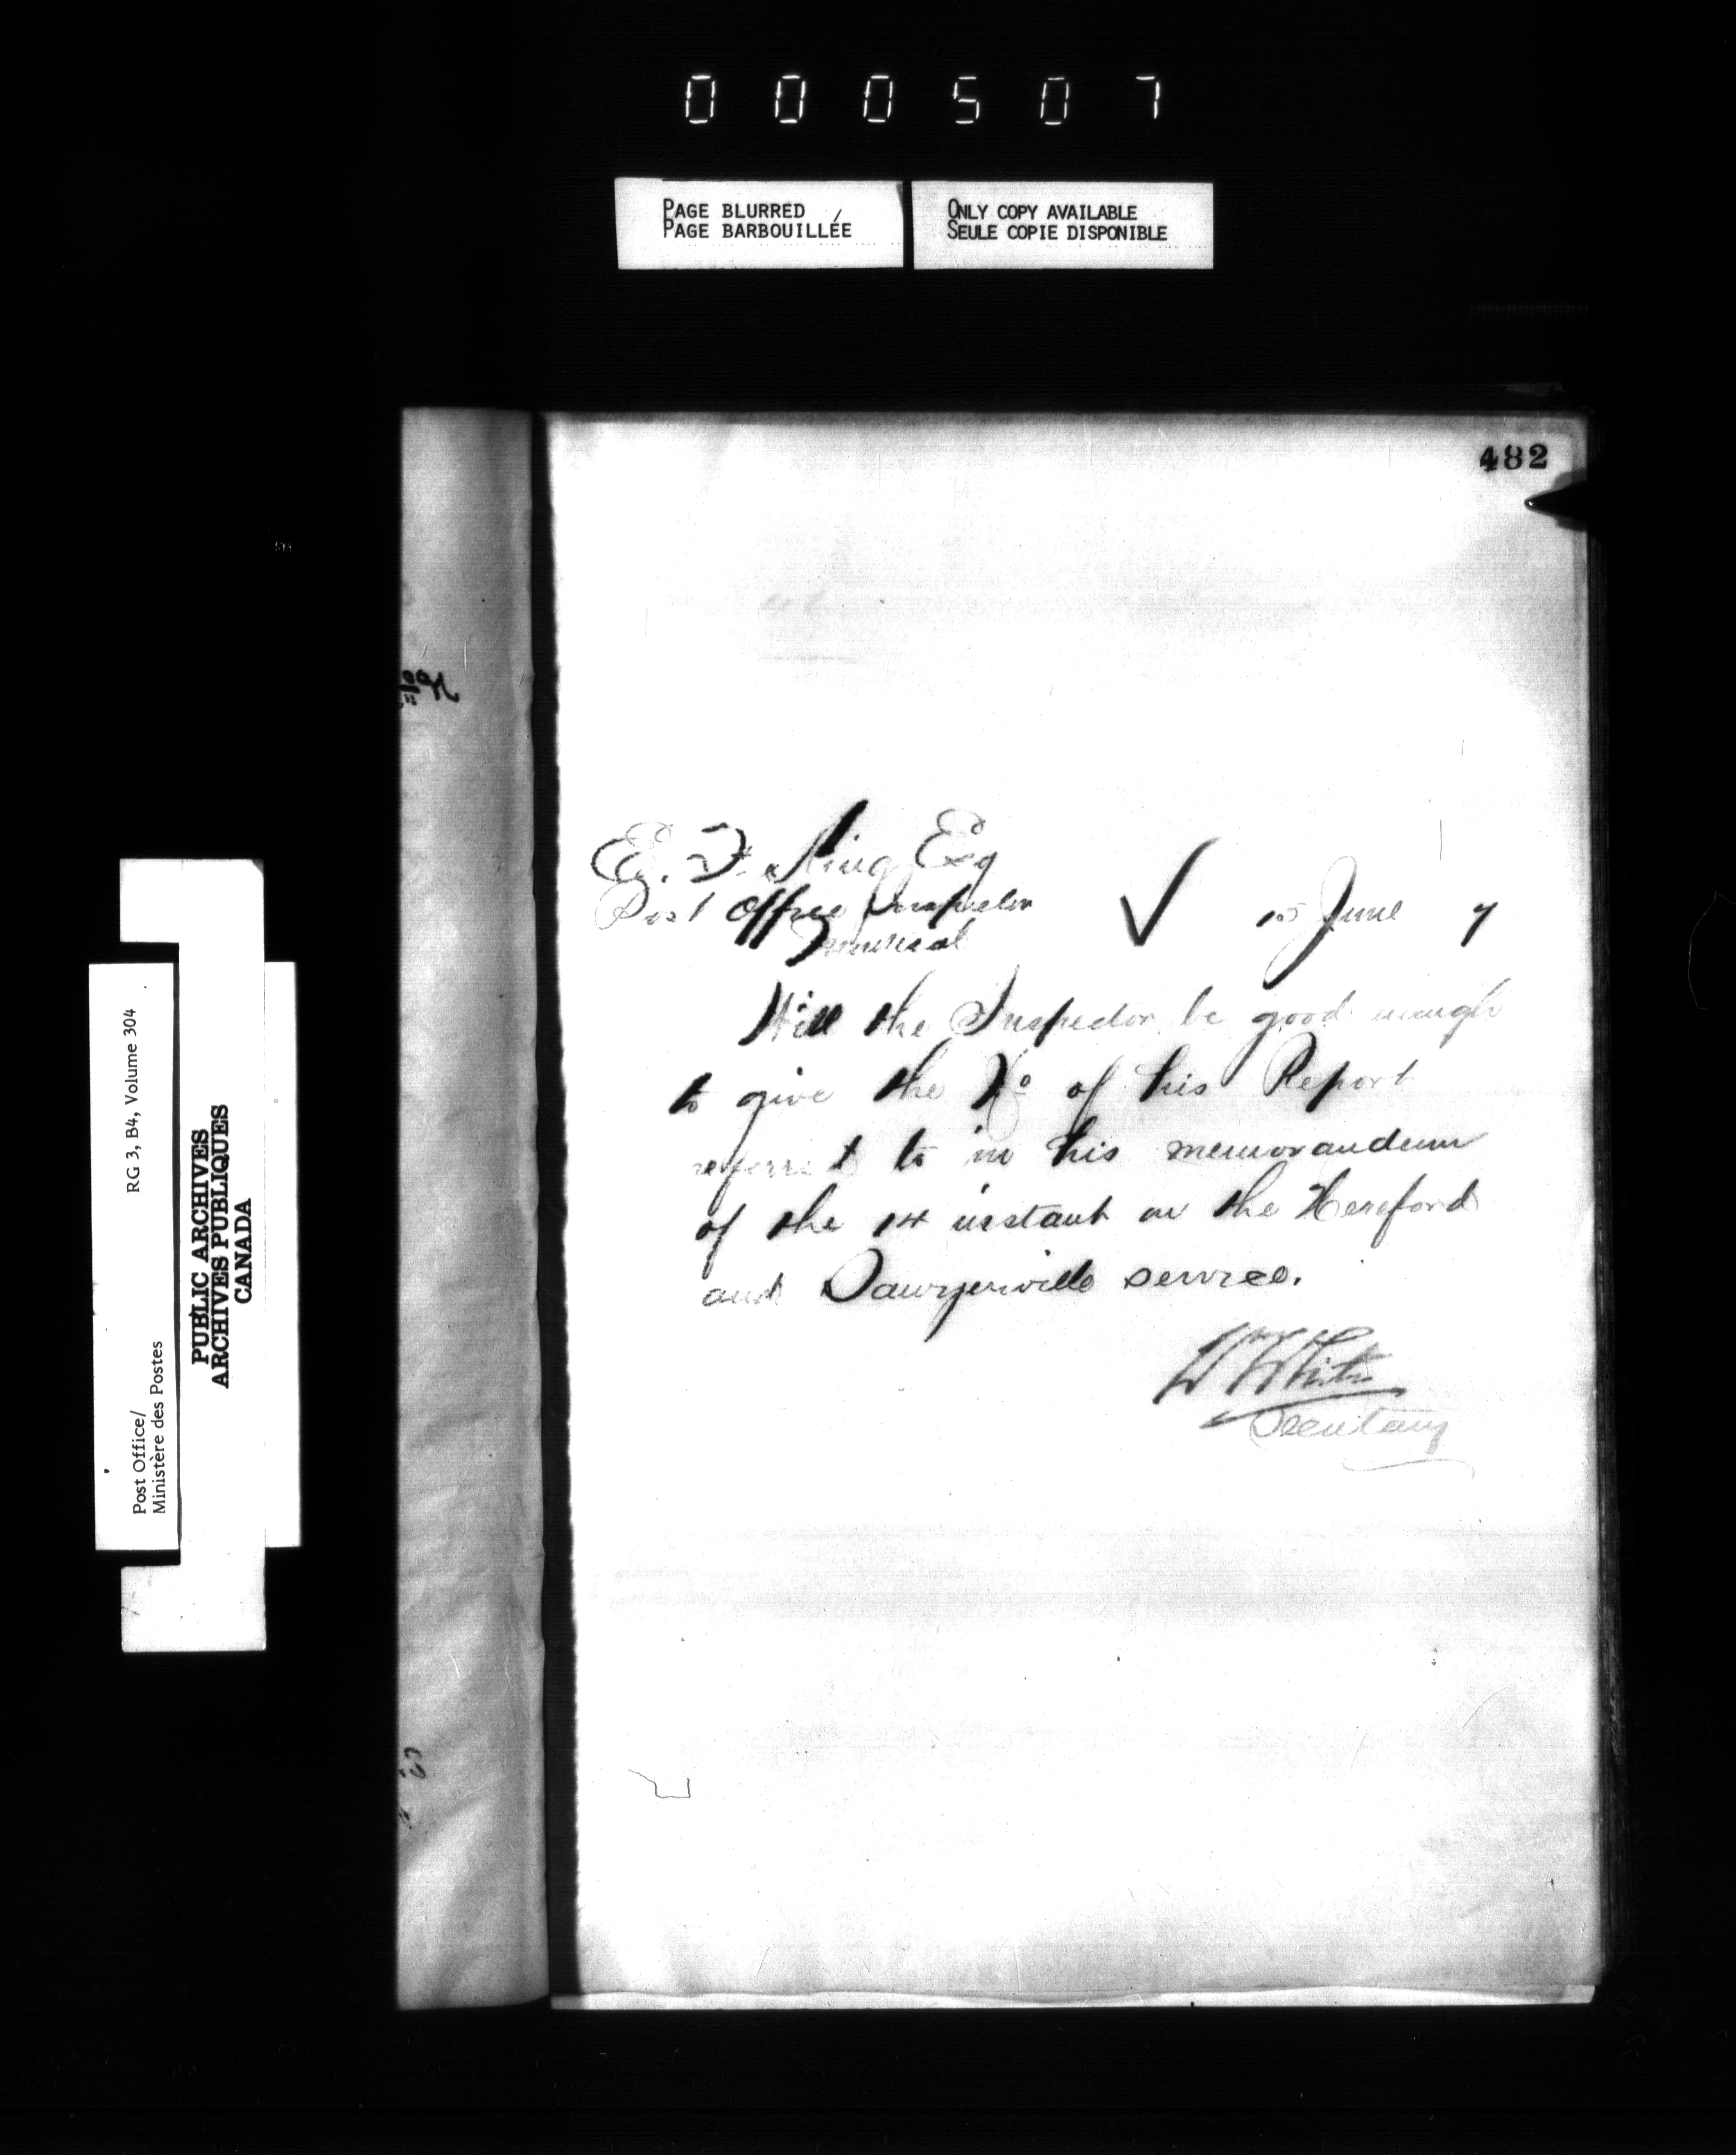 000507
PAGE BLURRED
PAGE BARBOUILLÉE
ONLY COPY AVAILABLE
SEULE COPIE DISPONIBLE
482
E. F. King Esq
Post Office Inspector
Montreal
15 June 7
Will the Inspector be good enough
to give the No of his Report
referred to in his memorandum
of the 14 instant on the Hereford
and Sawyerville service.
W White
Secretary
Post Office/
Ministère des Postes
RG 3, B4, Volume 304
PUBLIC ARCHIVES
ARCHIVES PUBLIQUES
CANADA